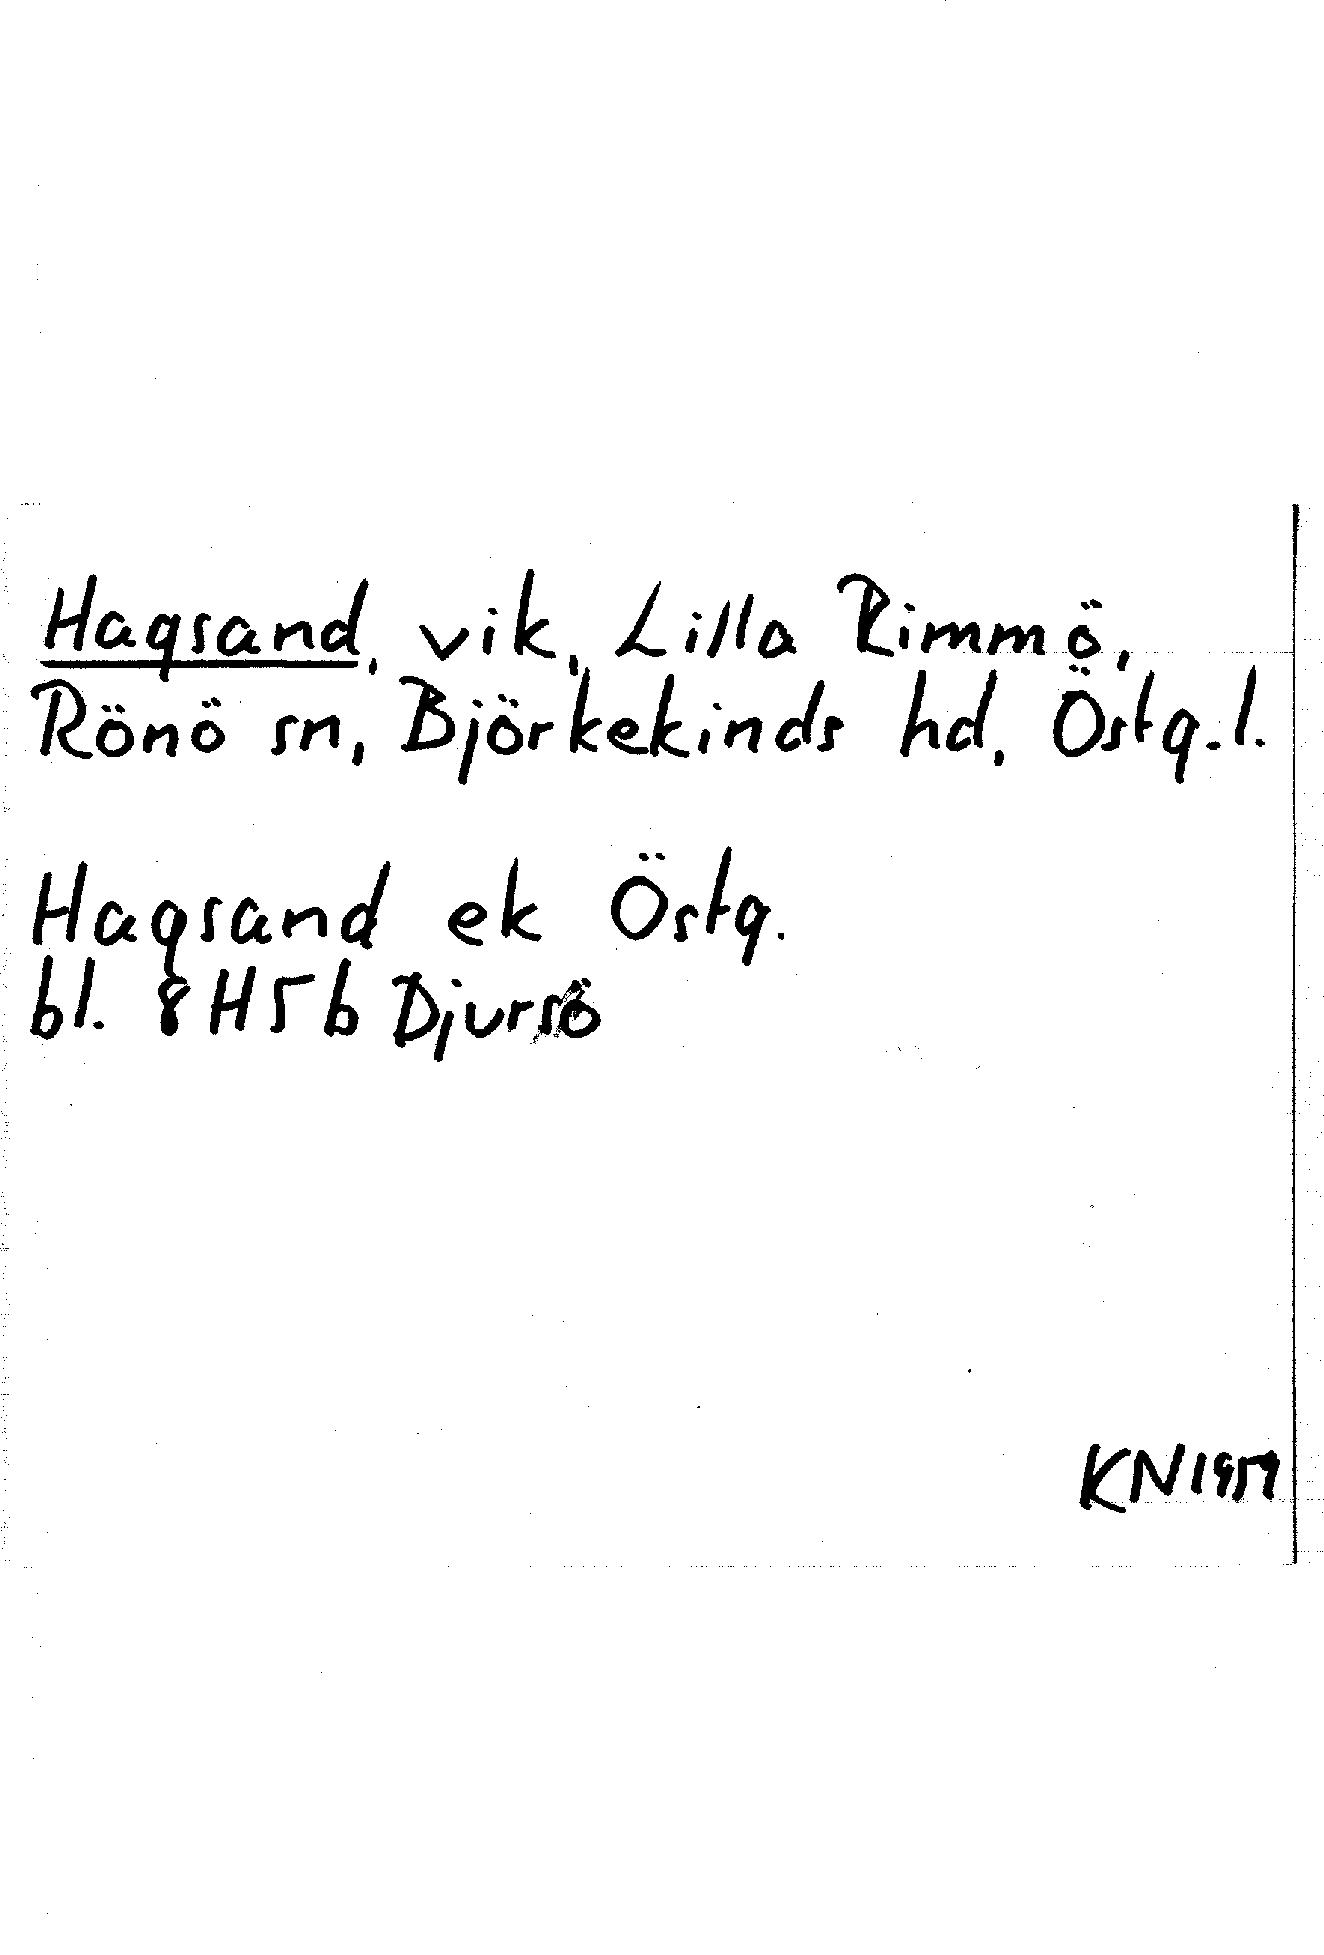 Hagsand, vik, Lilla Rimmö,
Rönö sn, Björkekinds hd, Östg.l.
Hagsand ek Östg.
bl. 8H5b Djursö
KN1959